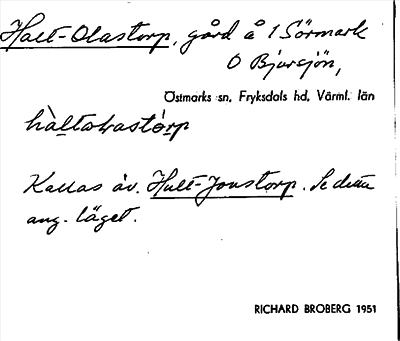 Halt-Olastorp, gård å 1 Sörmark
O Bjursjön,
Östmarks sn, Fryksdals hd, Värml. län
hàltoḷrastórp
Kallas äv. Hult-Jonstorp. Se detta
ang. läget.
RICHARD BROBERG 1951